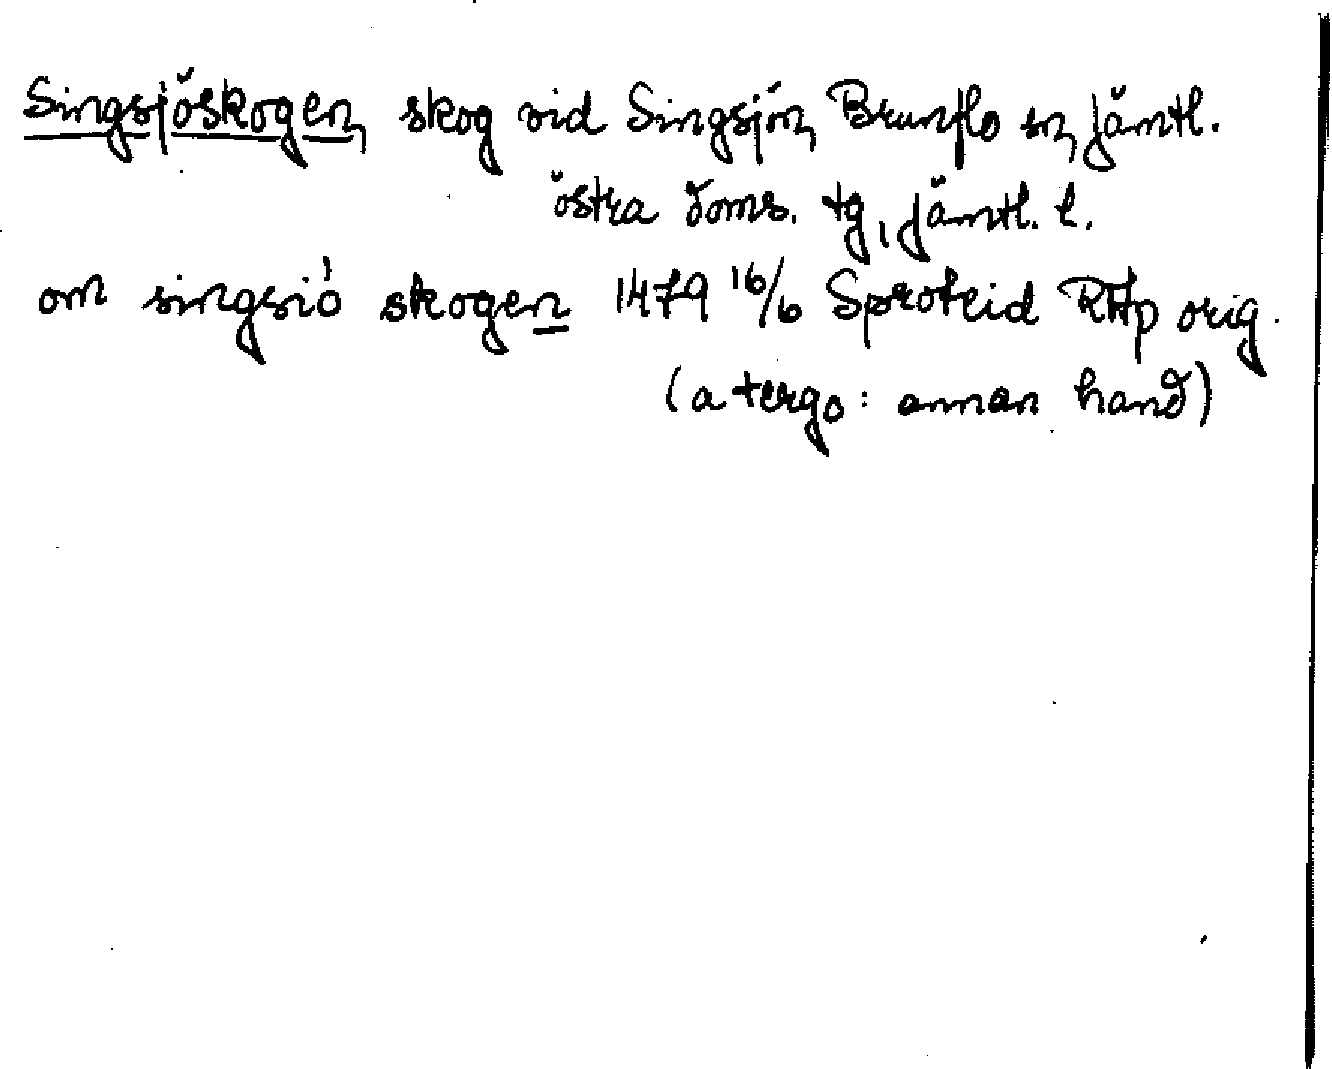 Singsjöskogen, skog vid Singsjön, Brunflo sn, Jämtl.
östra doms. tg, Jämtl. l.
om singsió skogen 1479 16/6 Sproteid RAp orig.
(a tergo: annan hand)